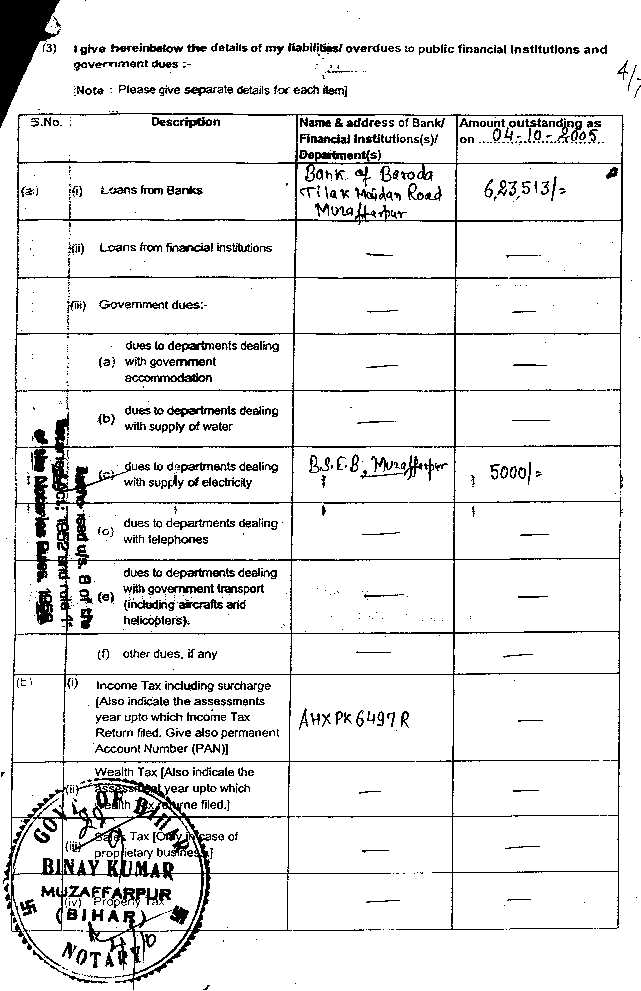 (3) I give hereinbelow the details of my liabilities/ overdues to public financial institutions and
government dues :-
[Note : Please give separate details for each item]
S.No. Description Name & address of Bank/ Financial Institutions(s)/ Department(s) Amount outstanding as on 04-10-2005
(a) (i) Loans from Banks Bank of Baroda Tilak Maidan Road Muzaffarpur 6,23,513/=
(ii) Loans from financial institutions — —
(iii) Government dues:- — —
(a) dues to departments dealing with government accommodation — —
(b) dues to departments dealing with supply of water — —
(c) dues to departments dealing with supply of electricity B.S.E.B, Muzaffarpur 5000/=
dues to departments dealing with telephones — —
(e) dues to departments dealing with government transport (including aircrafts and helicopters). — —
(f) other dues, if any — —
(b) (i) Income Tax including surcharge
[Also indicate the assessments
year upto which Income Tax
Return filed. Give also permanent
Account Number (PAN)] AHXPK6497R —
(ii) Wealth Tax [Also indicate the
assessment year upto which
wealth Tax returne filed.] — —
(iii) Sales Tax [Only in case of
proprietary business.] — —
(iv) Property Tax — —
GOVT. OF BIHAR
BINAY KUMAR
MUZAFFARPUR
(BIHAR)
NOTARY
of the Notaries Rules, 1956